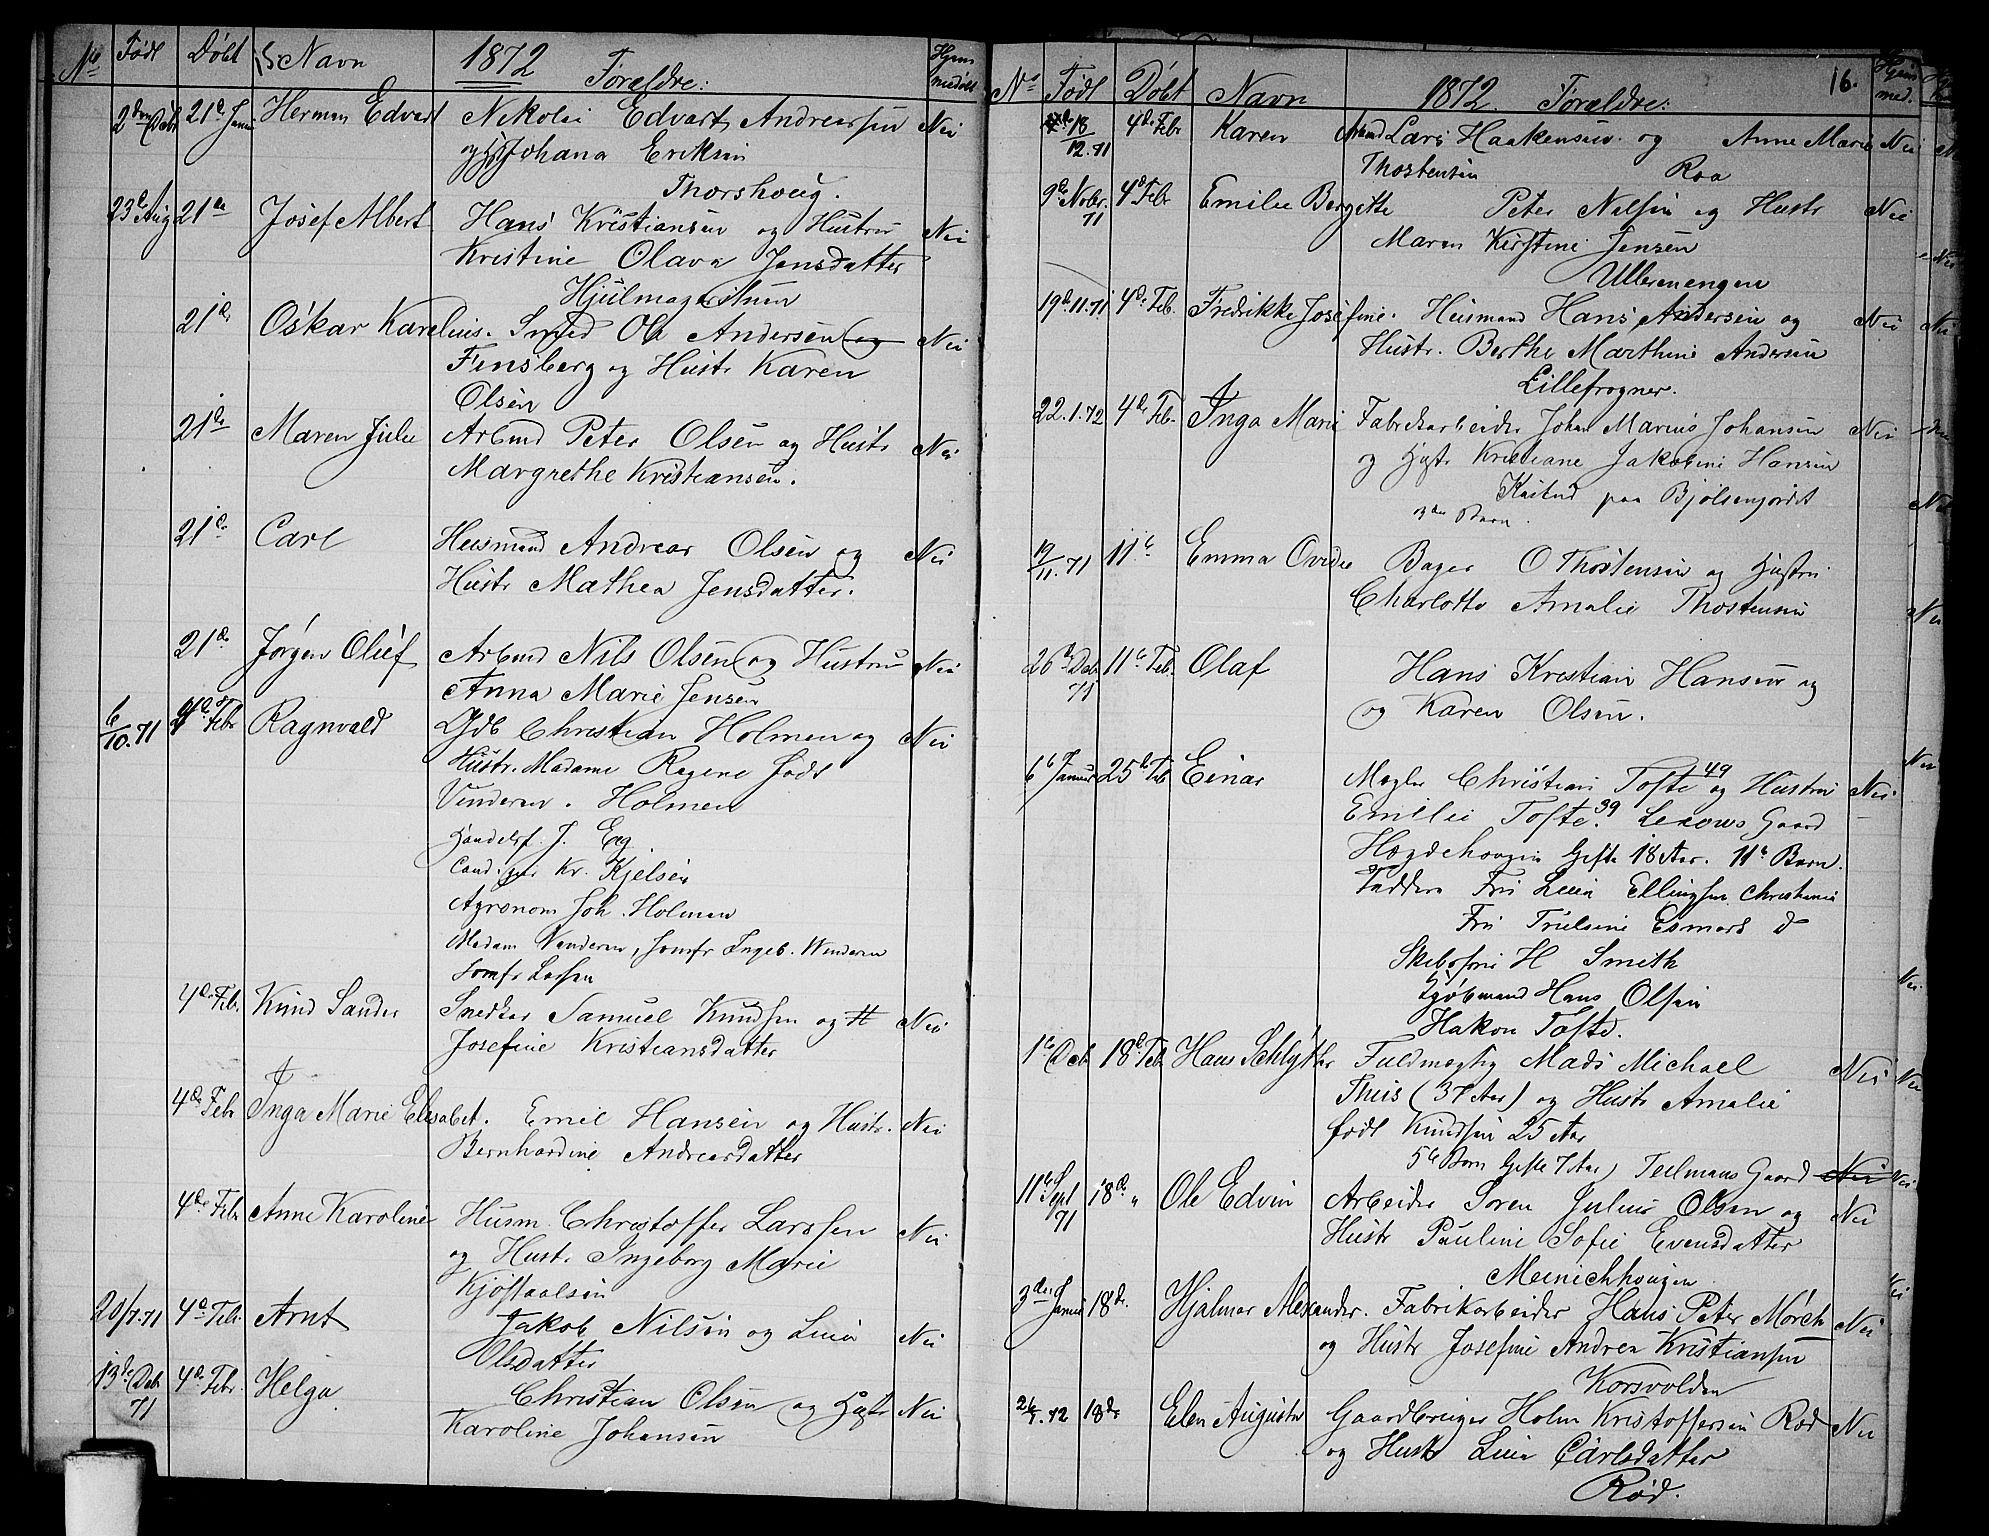 No Født Døbt Navn 1872 Forældre: Hjem
medøbt
2den Debr 21de Januar Herman Edvard Nikolai Edvart Andreassen Nei
og Johana Eriksen
Thorshoug.
23de Aug 21de Josef Albert Hans Kristiansen og Hustru Nei
Kristine Olava Jensdatter
Hjulmagerstuen
21de Oskar Karelius. Smed Ole Andersen og Nei
Finsberg og Hustr Karen
Olsen
21de Maren Julie Arbmd Peter Olsen og Hustr Nei
Margrethe Kristiansen.
21de Carl Husmand Andreas Olsen og Nei
Hustr Mathea Jensdatter.
21de Jørgen Oluf Arbmd Nils Olsen og Hustru Nei
Anna Marie Jensen
6/10.71 4de Febr Ragnvald Gdb Christian Holmen og Nei
Hustr. Madame Regene født
Vinderen. Holmen
Handelsf. J. Eg
Cand. Kr. Kjelsen
Agronom Joh. Holmen
Madam Venderen, Jomfr Ingeb. Winderen
Jomfr Larsen
4de Feb. Knud Sander Snedker Samuel Knudsen og H Nei
Josefine Kristiansdatter
4de Febr Inga Marie Elisabet. Emil Hansen og Hustr. Nei
Bernhardine Andreasdatter
4de Febr Anne Karoline Husm. Christoffer Larssen Nei
og Hustr. Ingeborg Marie
Kjøstaalsen
20/7.71 4de Febr. Arnt Jakob Nilsen og Lina Nei
Olsdatter
13de Deb 71 4de Febr. Helga Christian Olsen og Hustr Nei
Karoline Johansen
No Født Døbt Navn 1872 Forældre: 16. Hjem
med.
18/12.71 4de Febr Karen Arbmd Lars Haakensen og Anne Marie Nei
Thostensen Roa
9de Nobr. 71 4de Febr Emilie Bergette Peter Nilsen og Hustr Nei
Maren Kirstine Jensen
Ullernengen
19de.11.71 4de Feb. Fredrikke Josefine. Husmand Hans Andersen og Nei
Hustr. Berthe Marthine Andersen
Lillefrogner.
22.1.72 4de Feb. Inga Marie Fabrikarbeider Johan Marius Johansen Nei
og Hustr Kristiane Jakobine Hansen
paa Bjølsenjordet
3die Barn.
19/11.71 11te Emma Ovidie Bager O Thostensen og Hustru
Charlotte Amalie Thostensen
26de Deb 71 11te Feb. Olaf Hans Kristian Hansen og
og Karen Olsen.
6te Januar 25de Feb Einar Mægler Christian Tofte 49 og Hustru Nei
Emilie Tofte. 39 Lexows Gaard
Hægdehougen Gifte 18 Aar. 11te Barn.
Faddere Fru Lina Ellingsen Christiania
Fru Trulsine Esmark d
Skibsfrue H Smith
Kjøbmand Hans Olsen
Hakon Tofte.
1te Deb 18de Feb Hans Schlytter Fuldmægtig Mads Michael Nei
Thiis (37 Aar) og Hustr Amalie
født Knudsen 25 Aar
5te Barn Gifte 7 Aar) Teilmans Gaard Nei
11te Sept 71 18de " Ole Edvin Arbeider Søren Julius Olsen og Nei
Hustr Pauline Sofie Evensdatter
Meinichhougen
3die Januar 18de. Hjalmar Alexander. Fabrikarbeider Hans Peter Mørch Nei
og Hustr Josefine Andrea Kristiansen
Korsvolden
18de Elen Augusta Gaardbruger Holm Kristoffersen Rød Nei
og Hustr Lina Carlsdatter
Rød.